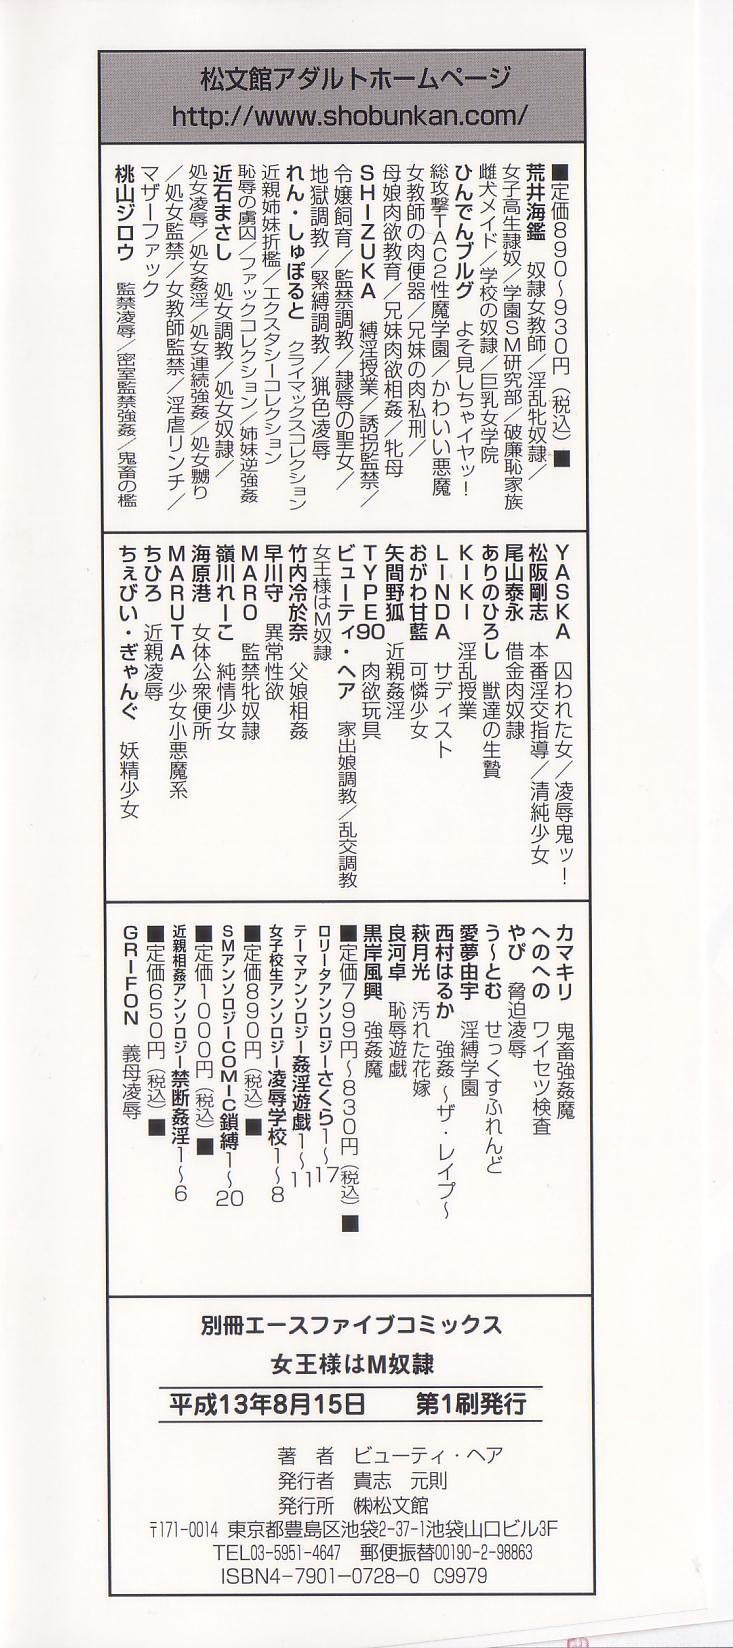 松文館アダルトホームページ
http://www.shobunkan.com/
■定価890〜930円（税込）■
荒井海鑑　奴隷女教師／淫乱牝奴隷／
女子高生隷奴／学園SM研究部／破廉恥家族
雌犬メイド／学校の奴隷／巨乳女学院
ひんでんブルグ　よそ見しちゃイヤッ！
総攻撃TAC2性魔学園／かわいい悪魔
女教師の肉便器／兄妹の肉私刑／
母娘肉欲教育／兄妹肉欲相姦／牝母
SHIZUKA　縛淫授業／誘拐監禁／
令嬢飼育／監禁調教／隷辱の聖女／
地獄調教／緊縛調教／猟色凌辱
れん・しゅぽると　クライマックスコレクション
近親姉妹折檻／エクスタシーコレクション
恥辱の虜囚／ファックコレクション／姉妹逆強姦
近石まさし　処女調教／処女奴隷／
処女凌辱／処女姦淫／処女連続強姦／処女嬲り
／処女監禁／女教師監禁／淫虐リンチ／
マザーファック
桃山ジロウ　監禁凌辱／密室監禁強姦／鬼畜の檻
YASKA　囚われた女／凌辱鬼ッ！
松阪剛志　本番淫交指導／清純少女
尾山泰永　借金肉奴隷
ありのひろし　獣達の生贄
KIKI　淫乱授業
LINDA　サディスト
おがわ甘藍　可憐少女
矢間野狐　近親姦淫
TYPE90　肉欲玩具
ビューティ・ヘア　家出娘調教／乱交調教
女王様はM奴隷
竹内冷於奈　父娘相姦
早川守　異常性欲
MARO　監禁牝奴隷
嶺川れーこ　純情少女
海原港　女体公衆便所
MARUTA　少女小悪魔系
ちひろ　近親凌辱
ちぇびい・ぎゃんぐ　妖精少女
カマキリ　鬼畜強姦魔
へのへの　ワイセツ検査
やぴ　脅迫凌辱
う〜とむ　せっくすふれんど
愛夢由宇　淫縛学園
西村はるか　強姦〜ザ・レイプ〜
萩月光　汚れた花嫁
良河卓　恥辱遊戯
黒岸風興　強姦魔
■定価799円〜830円（税込）■
ロリータアンソロジーさくら1〜17
テーマアンソロジー姦淫遊戯1〜11
女子校生アンソロジー凌辱学校1〜8
■定価890円（税込）■
SMアンソロジーCOMIC鎖縛1〜20
■定価1000円（税込）■
近親相姦アンソロジー禁断姦淫1〜6
■定価650円（税込）■
GRIFON　義母凌辱
別冊エースファイブコミックス
女王様はM奴隷
平成13年8月15日　第1刷発行
著　者　ビューティ・ヘア
発行者　貴志　元則
発行所　㈱松文館
〒171-0014 東京都豊島区池袋2-37-1池袋山口ビル3F
TEL03-5951-4647　郵便振替00190-2-98863
ISBN4-7901-0728-0　C9979